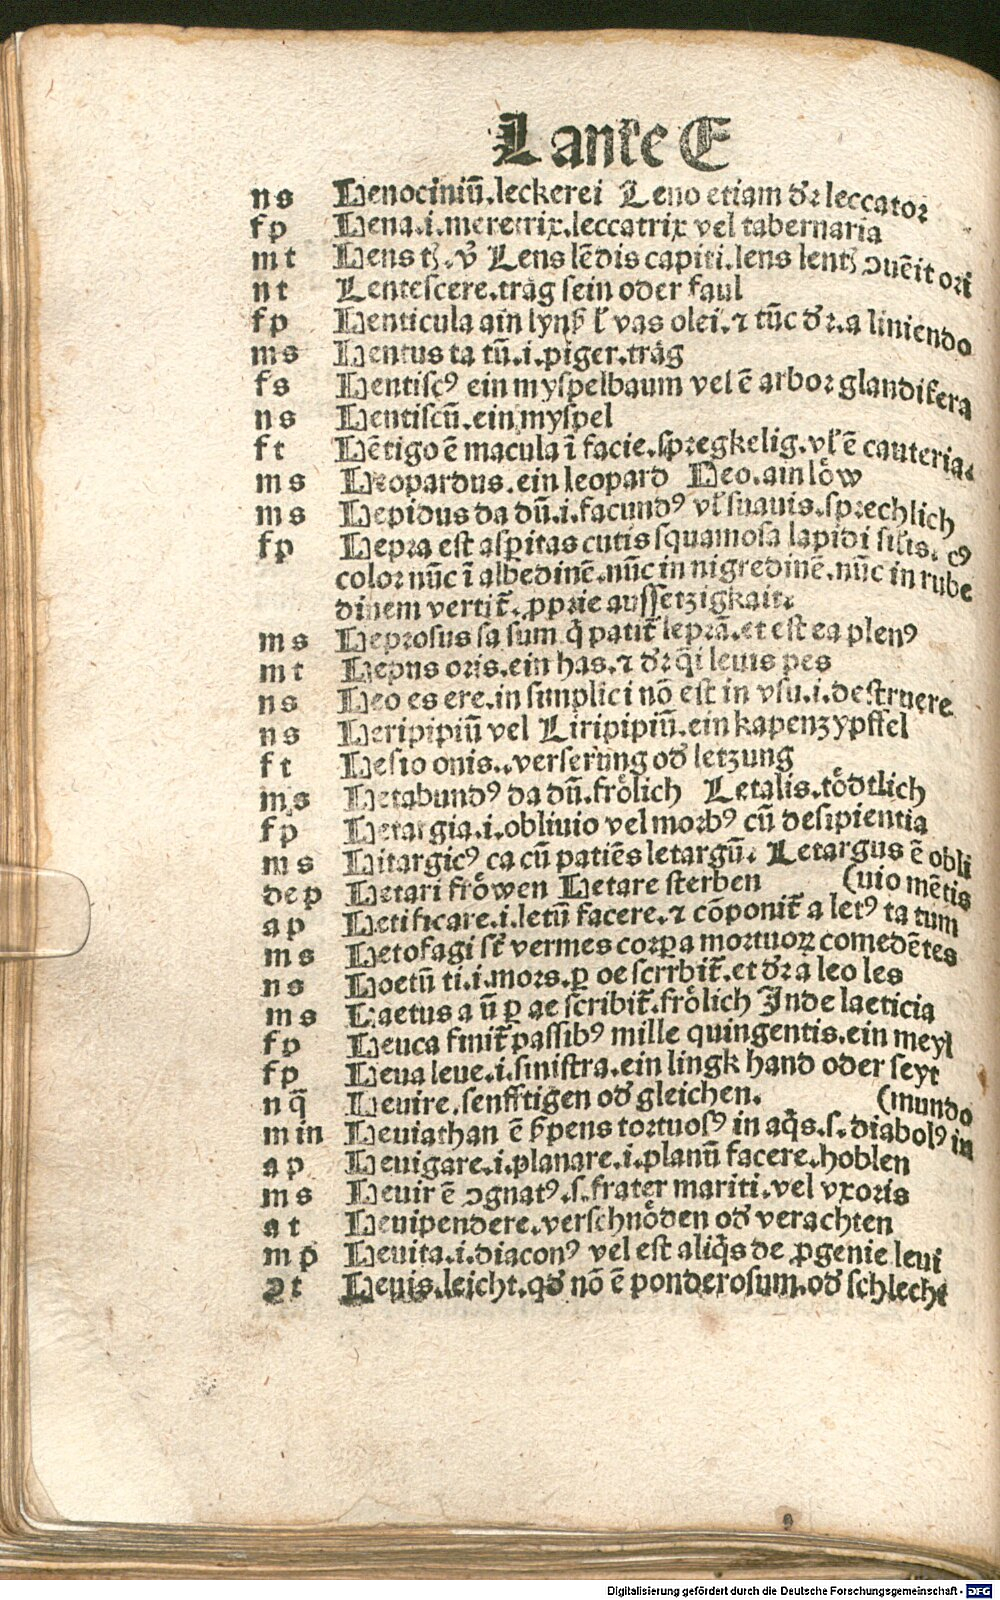 L ante E
ns Lenociniū.leckerei Leno etiam dr̄ leccator
fp Lena.i.meretrix.leccatrix vel tabernaria
mt Lens tꝫ.v̄ Lens lēdis capiti.lens lentꝫ ↄuēit ori
nt Lentescere.träg sein oder faul
fp Lenticula ain lynß ł vas olei.⁊ tūc dr̄.a liniendo
ms Lentus ta tū.i.piger.träg
fs Lentiscꝰ ein myspelbaum vel ē arbor glandifera
ns Lentiscū.ein myspel
ft Lētigo ē macula ī facie.spregkelig.vł ē cauteria.
ms Leopardus.ein leopard Leo.ain löw
ms Lepidus da dū.i.facundꝰ vł suauis.sprechlich
fp Lepra est asꝑitas cutis squamosa lapidi silis. cꝰ
color nūc ī albedinē.nūc in nigredinē.nūc in rube
dinem vertit̄.ꝓprie aussetzigkait
ms Leprosus sa sum.q̄ patit̄ leprā.et est ea plenꝰ
mt Lepus oris.ein has.⁊ dr̄ q̄i leuis pes
ns Leo es ere.in simplici nō est in vsu.i.destruere
ns Leripipiū vel Liripipiū.ein kapenzypffel
ft Lesio onis..verserung od̄ letzung
ms Letabundꝰ da dū.frölich Letalis.tödtlich
fp Letargia.i.obliuio vel morbꝰ cū desipientia
ms Litargicꝰ ca cū patiēs letargū. Letargus ē obli
dep Letari fröwen Letare sterben (uio mētis
ap Letificare.i.letū facere.⁊ cōponit̄ a letꝰ ta tum
ms Letofagi st̄ vermes corꝑa mortuoꝝ comedētes
ns Loetū ti.i.mors.ꝑ oe scrrbit̄.et dr̄ a leo les
ms Laetus a ū ꝑ ae scribit̄.frölich Inde laeticia
fp Leuca finit̄ passibꝰ mille quingentis.ein meyl
fp Leua leue.i.sinistra.ein lingk hand oder seyt
nq̄ Leuire.senfftigen od̄ gleichen. (mundo
min Leuiathan ē ẜpens tortuosꝰ in aq̄s.s.diabolꝰ in
ap Leuigare.i.planare.i.planū facere.hoblen
ms Leuir ē ↄgnatꝰ.s.frater mariti.vel vxoris
at Leuipendere.verschnöden od̄ verachten
mp Leuita.i.diaconꝰ vel est aliq̄s de ꝓgenie leui
at Leuis.leicht.qd̄ nō ē ponderosum.od̄ schlecht
Digitalisierung gefördert durch die Deutsche Forschungsgemeinschaft - DFG